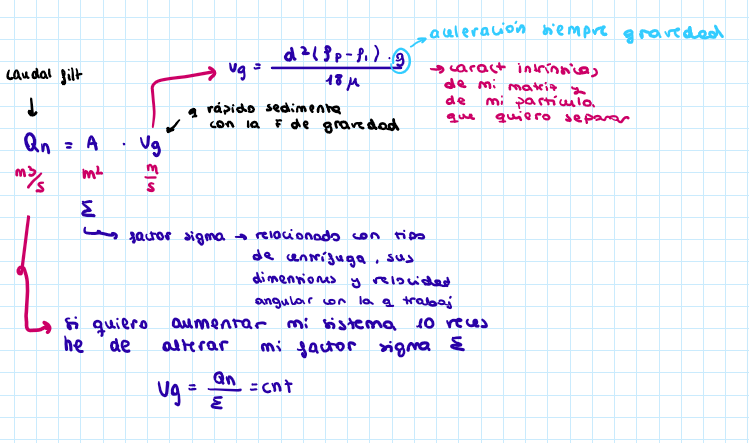 aceleración siempre gravedad
vg = d²(ρp - ρl) · g / 18 μ
→ caract intrínsicas
de mi matriz y
de mi partícula
que quiero separar
caudal filt
q rápido sedimenta
con la F de gravedad
Qn = A · Vg
m³/s m² m/s
Σ
factor sigma → relacionado con tipo
de centrífuga, sus
dimensiones y velocidad
angular con la q trabaj
si quiero aumentar mi sistema 10 veces
he de alterar mi factor sigma Σ
Vg = Qn / Σ = cnt